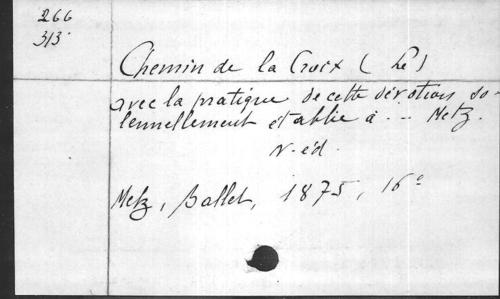 266
313
Chemin de la Croix ( Le )
avec la pratique de cette dévotion so-
lennellement établie à ... Metz.
N. éd.
Metz, Ballet, 1875, 16°